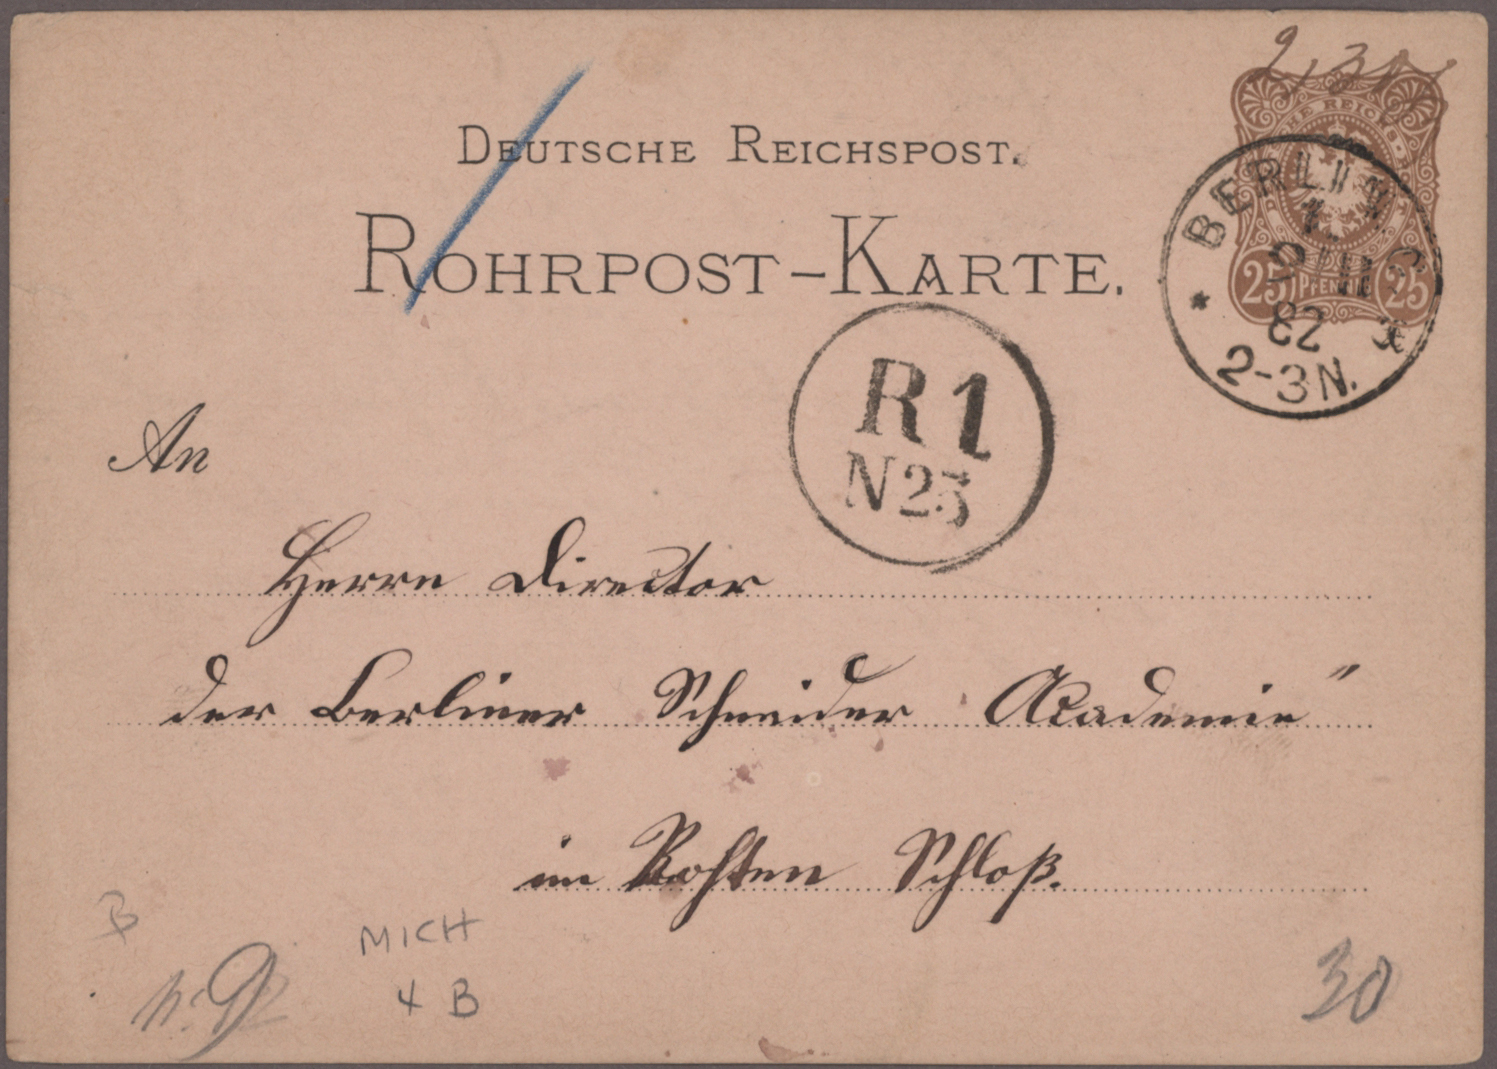 DEUTSCHE REICHSPOST.
ROHRPOST-KARTE.
DEUTSCHE REICHS-POST
25 PFENNIG 25
BERLIN
82
2-3N.
R 1
N23
An
Herrn Director
der Berliner Schneider Academie"
im Rothen Schloß.
B
MICH
4 B
30